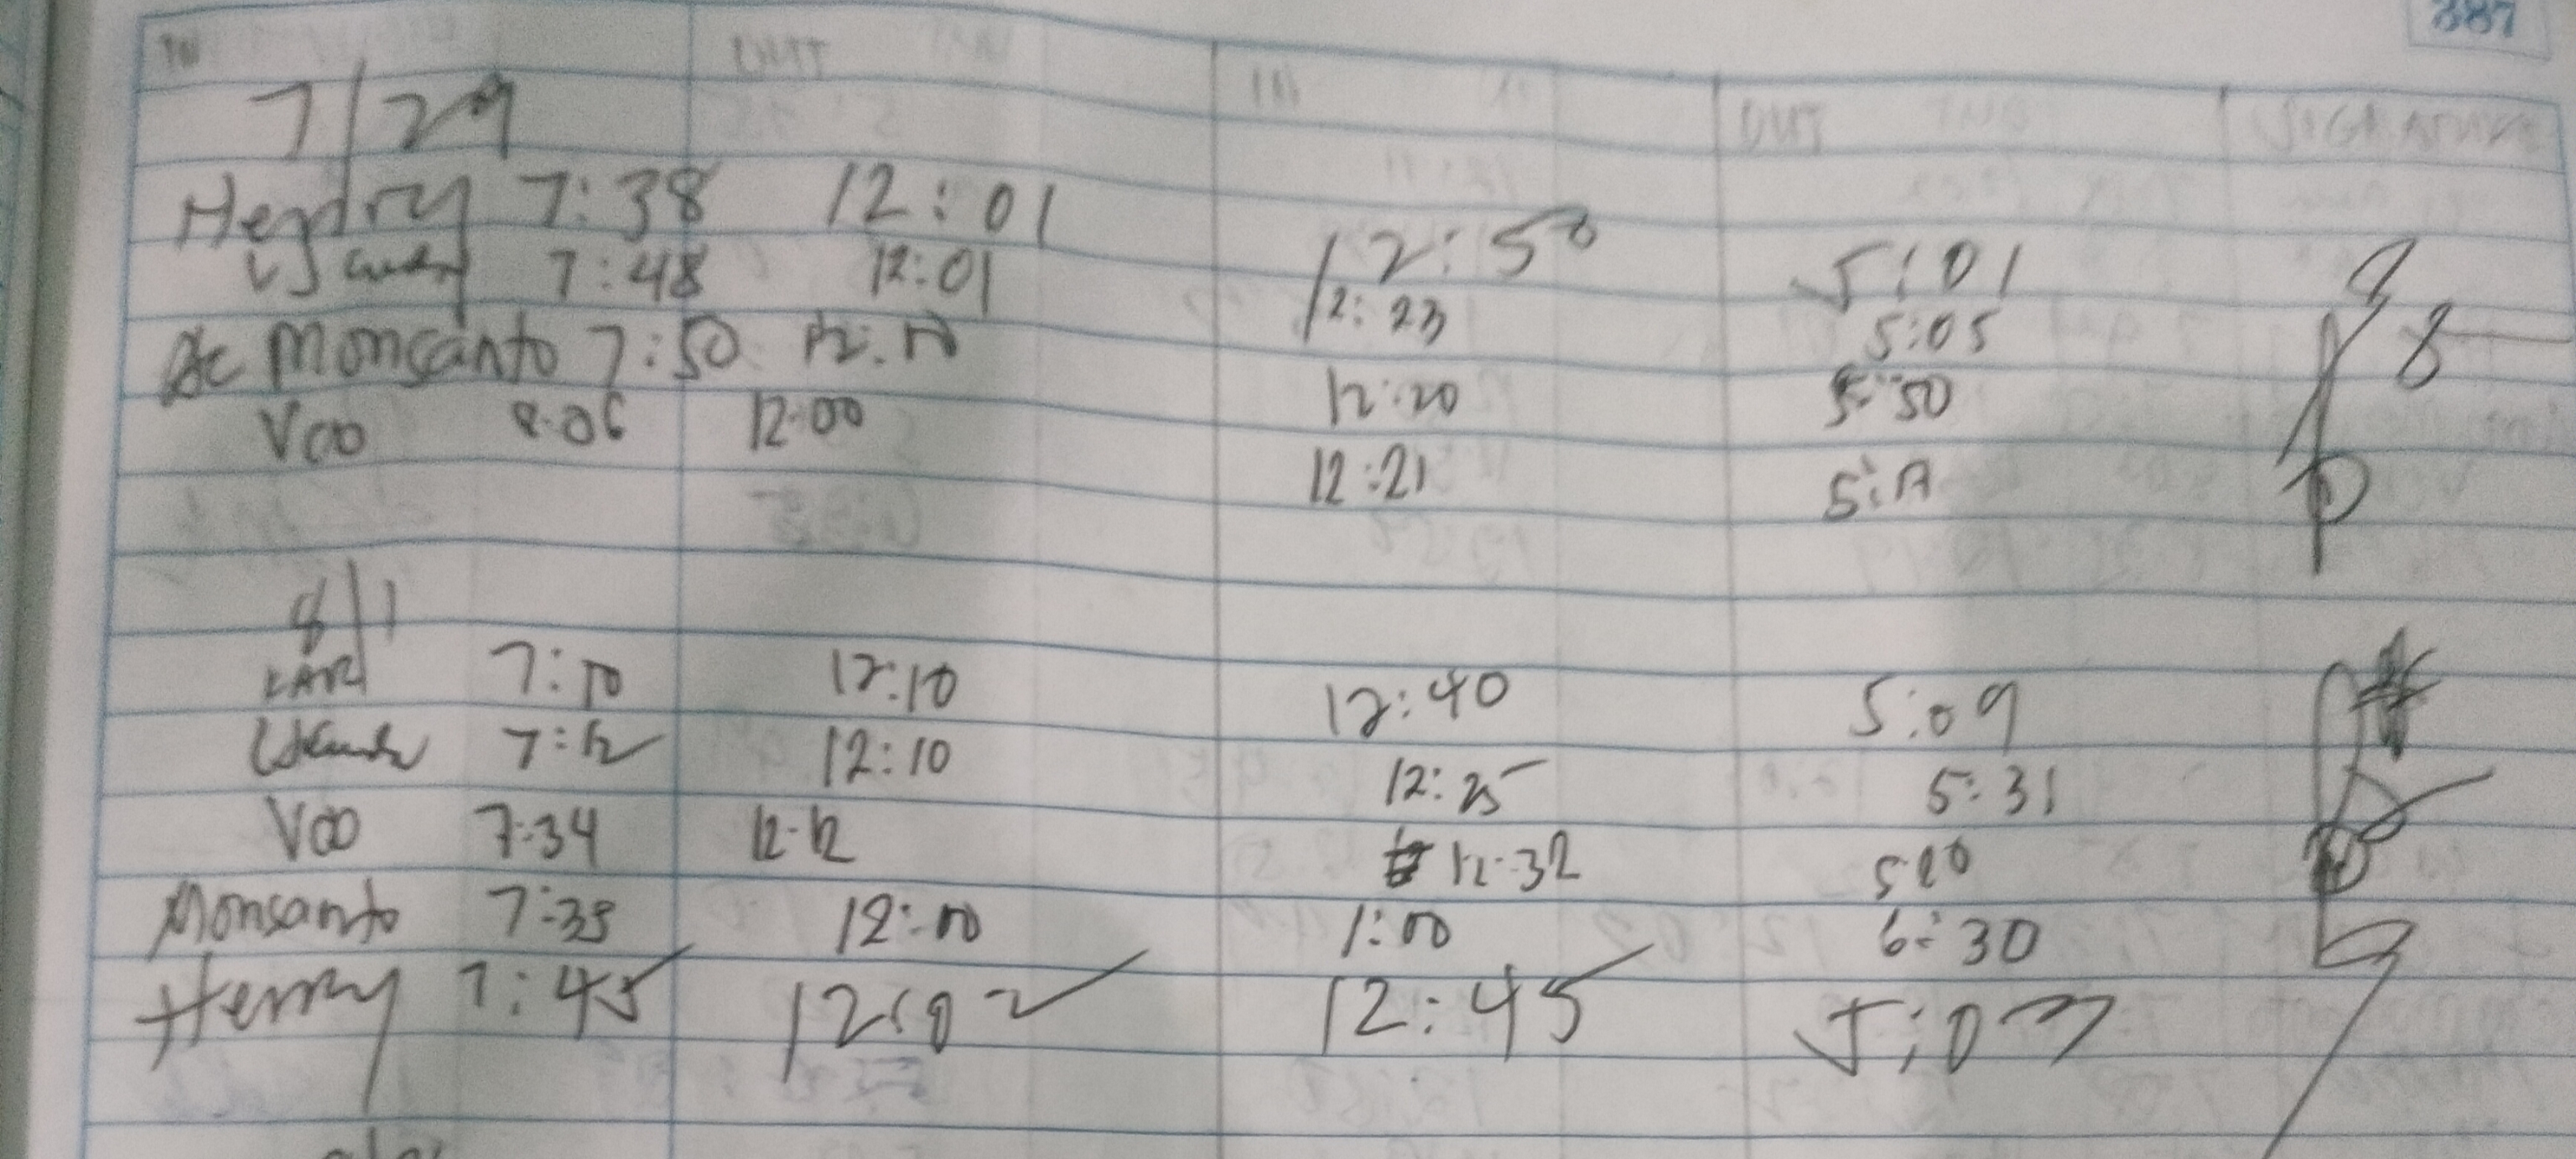 887
IN OUT IN OUT SIGNATURE
7/29
Hendry 7:38 12:01 12:50 5:01
7:48 12:01 12:23 5:05
Monsanto 7:50 12:10 12:20 5:50
Voo 8:06 12:00 12:21 5:
8/1
KARL 7:10 12:10 12:40 5:09
7:12 12:10 12:25 5:31
Voo 7:34 12:12 12:32 5:20
Monsanto 7:35 12:00 1:00 6:30
Henry 7:45 12:02 12:45 5:07